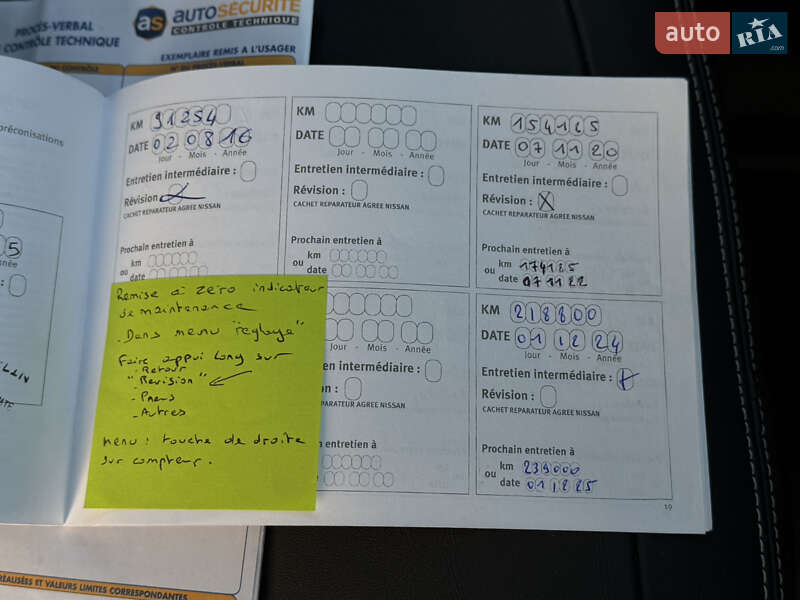 PROCÈS-VERBAL
CONTRÔLE TECHNIQUE
as AUTOSÉCURITÉ
CONTRÔLE TECHNIQUE
EXEMPLAIRE REMIS A L'USAGER
auto RIA.com
préconisations
KM 91254
DATE 02 08 16
Jour - Mois - Année
Entretien intermédiaire :
Révision :
CACHET REPARATEUR AGREE NISSAN
Prochain entretien à
km
ou
date
KM
DATE
Jour - Mois - Année
Entretien intermédiaire :
Révision :
CACHET REPARATEUR AGREE NISSAN
Prochain entretien à
km
ou
date
KM 154165
DATE 07 11 20
Jour - Mois - Année
Entretien intermédiaire :
Révision : X
CACHET REPARATEUR AGREE NISSAN
Prochain entretien à
km 174165
ou
date 07 11 22
Remise à zéro indicateur
de maintenance
- Dans menu "réglage"
Faire appui long sur
- Retour
"Revision"
- Pneus
- Autres
menu : touche de droite
sur compteur.
Jour - Mois - Année
intermédiaire :
REPARATEUR AGREE NISSAN
entretien à
KM 218800
DATE 01 12 24
Jour - Mois - Année
Entretien intermédiaire :
Révision :
CACHET REPARATEUR AGREE NISSAN
Prochain entretien à
km 239000
ou
date 01 12 25
19
RÉALISÉES ET VALEURS LIMITES CORRESPONDANTES